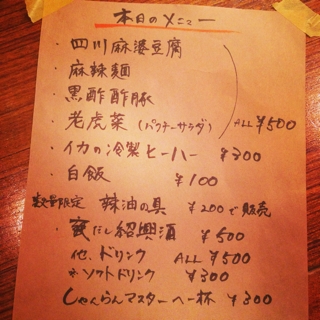 本日のメニュー
・四川麻婆豆腐
・麻辣麺
・黒酢酢豚
・老虎菜(パクチーサラダ) ALL ¥500
・イカの冷製ヒーハー ¥300
・白飯 ¥100
数量限定 辣油の具 ¥200で販売
・寝だし紹興酒 ¥500
他、ドリンク ALL ¥500
ソフトドリンク ¥300
しゃんらんマスターへ一杯 ¥300